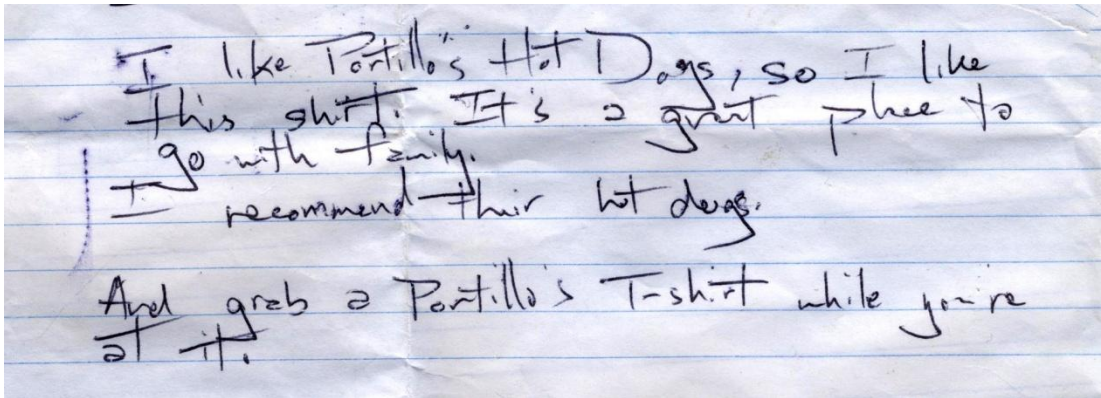 I like Portillo's Hot Dogs, so I like
this shirt. It's a great place to
go with family.
I recommend their hot dogs.
And grab a Portillo's T-shirt while you're
at it.